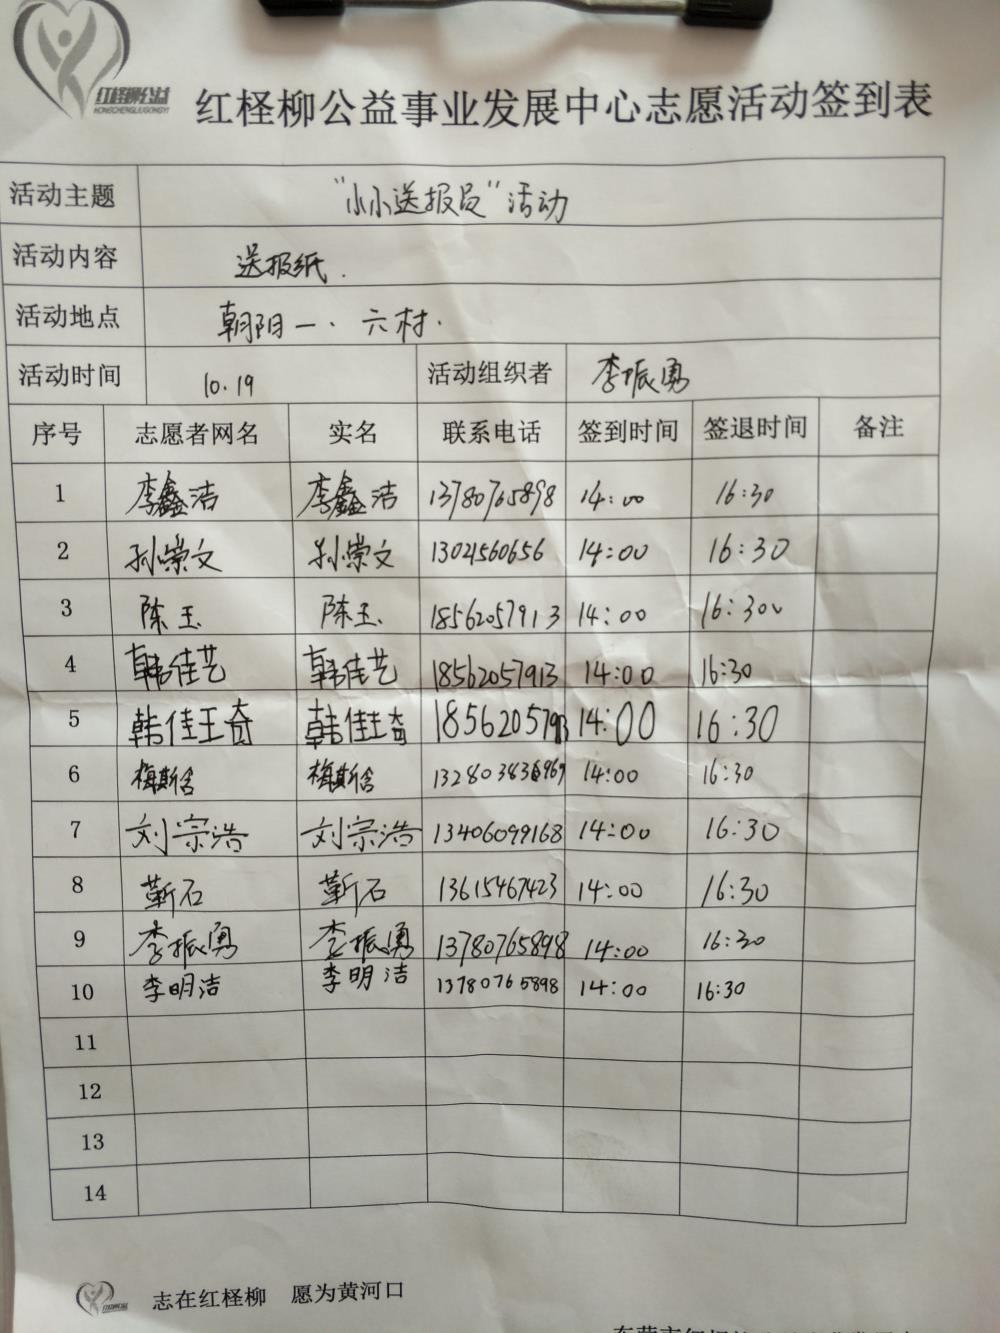 红柽柳公益
HONGCHENGLIUGONGYI
红柽柳公益事业发展中心志愿活动签到表
活动主题 “小小送报员”活动
活动内容 送报纸.
活动地点 朝阳一.六村.
活动时间 10.19 活动组织者 李振勇
序号 志愿者网名 实名 联系电话 签到时间 签退时间 备注
1 李鑫洁 李鑫洁 13780765898 14:00 16:30
2 孙崇文 孙崇文 13021560656 14:00 16:30
3 陈玉 陈玉 18562057913 14:00 16:30
4 韩佳艺 韩佳艺 18562057913 14:00 16:30
5 韩佳琦 韩佳琦 18562057913 14:00 16:30
6 梅斯含 梅斯含 14:00 16:30
7 刘宗浩 刘宗浩 13406099168 14:00 16:30
8 靳石 靳石 13615467423 14:00 16:30
9 李振勇 李振勇 13780765898 14:00 16:30
10 李明洁 李明洁 13780765898 14:00 16:30
11
12
13
14
志在红柽柳 愿为黄河口